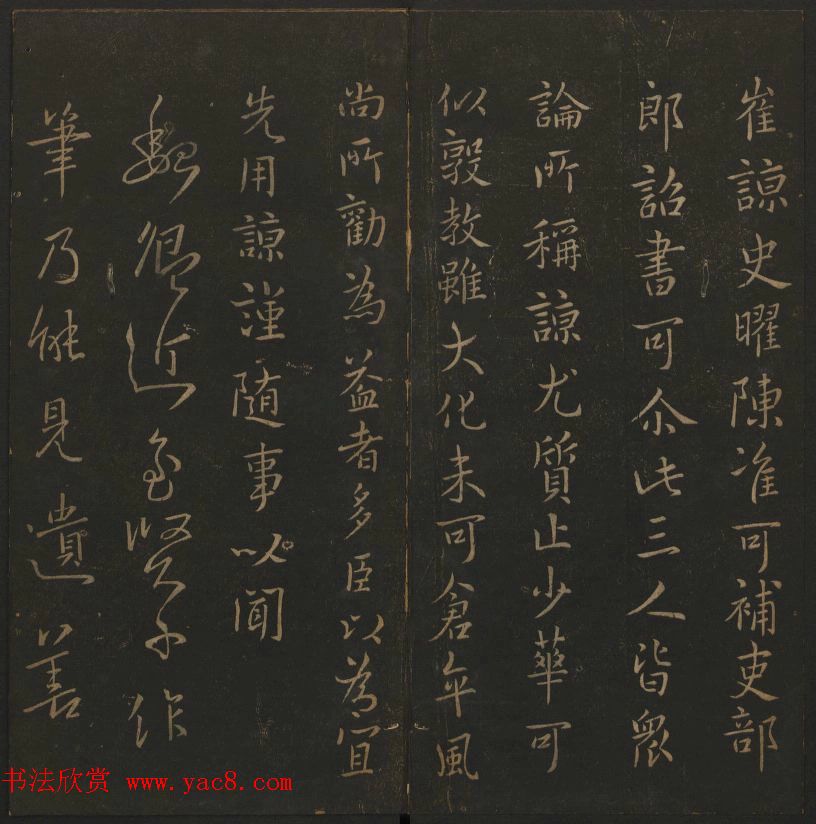 崔諒史曜陳准可補吏部
郎詔書可尒此三人皆眾
論所稱諒尤質止少華可
以敦教雖大化未可倉卒風
尚所勸為益者多臣以為宜
先用諒謹隨事以聞
近 作
筆乃能見遺善
书法欣赏 www.yac8.com